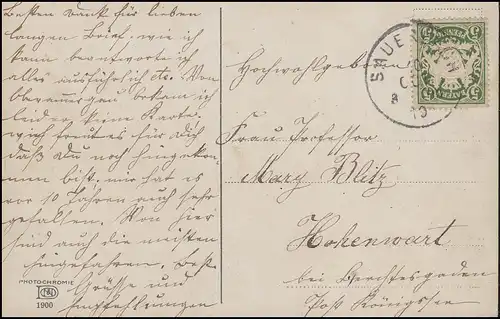 Besten Dank für lieben
langen Brief, wie ich
kann beantworte ich
alles ausführlich etc. Von
Oberammergau bekam ich
leider keine Karte.
mich freut es für dich
daß du noch hingekom
men bist, mir hat es
vor 10 Jahren auch sehr
gefallen. Von hier
sind auch die meisten
hingefahren. Beste
Grüsse und
Empfehlungen
PHOTOCHROMIE
1900
Hochwohlgeboren
Frau Professor
Mary Blitz
Hohenwart
bei Berchtesgaden
Post Königssee
BAYERN
5
5
5
5
10